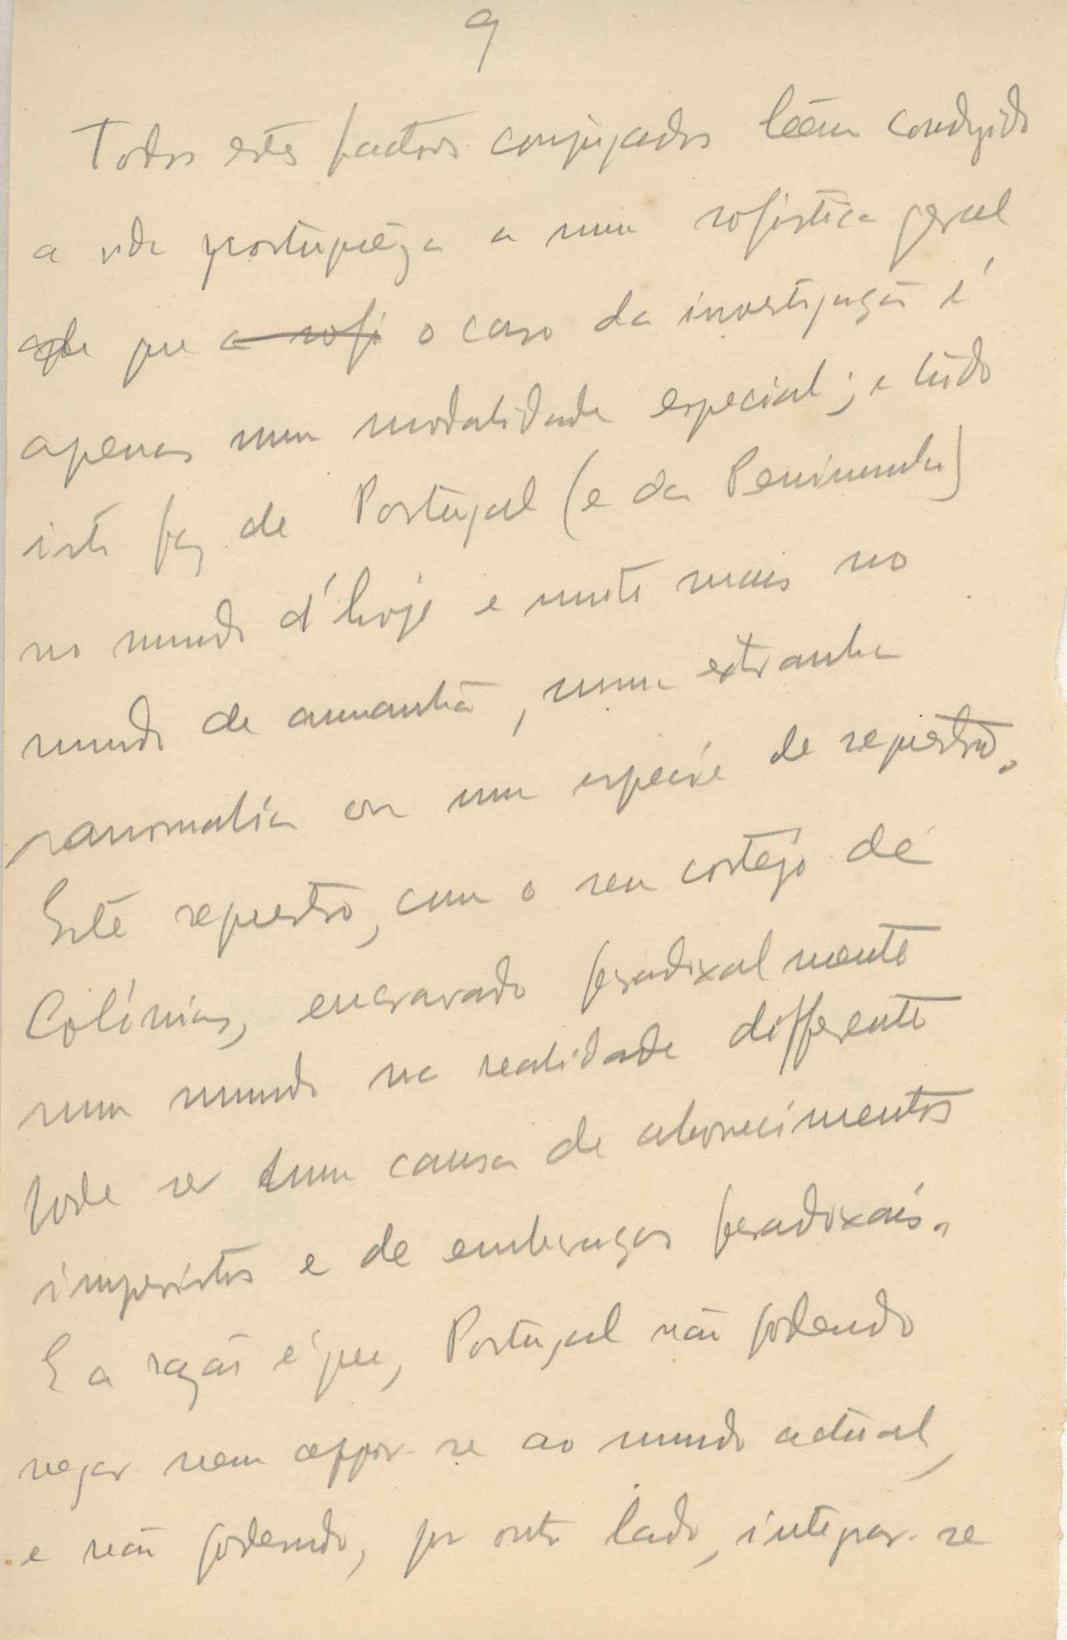 9
Todos estes factores conjugados teem conduzido
a vida portugueza a uma sofistica geral
de que a sofi o caso da investigação é
apenas uma modalidade especial; e tudo
isto faz de Portugal (e da Peninsula)
no mundo d'hoje e muito mais no
mundo de amanhã, uma extranha
anomalia ou uma especie de sequestro.
Este sequestro, com o seu cortejo de
Colónias, encravado paradoxalmente
num mundo na realidade differente
pode ser uma causa de aborrecimentos
imprevistos e de embaraços paradoxais.
E a razão é que, Portugal não podendo
negar nem oppor-se ao mundo actual,
e não podendo, por outro lado, integrar-se